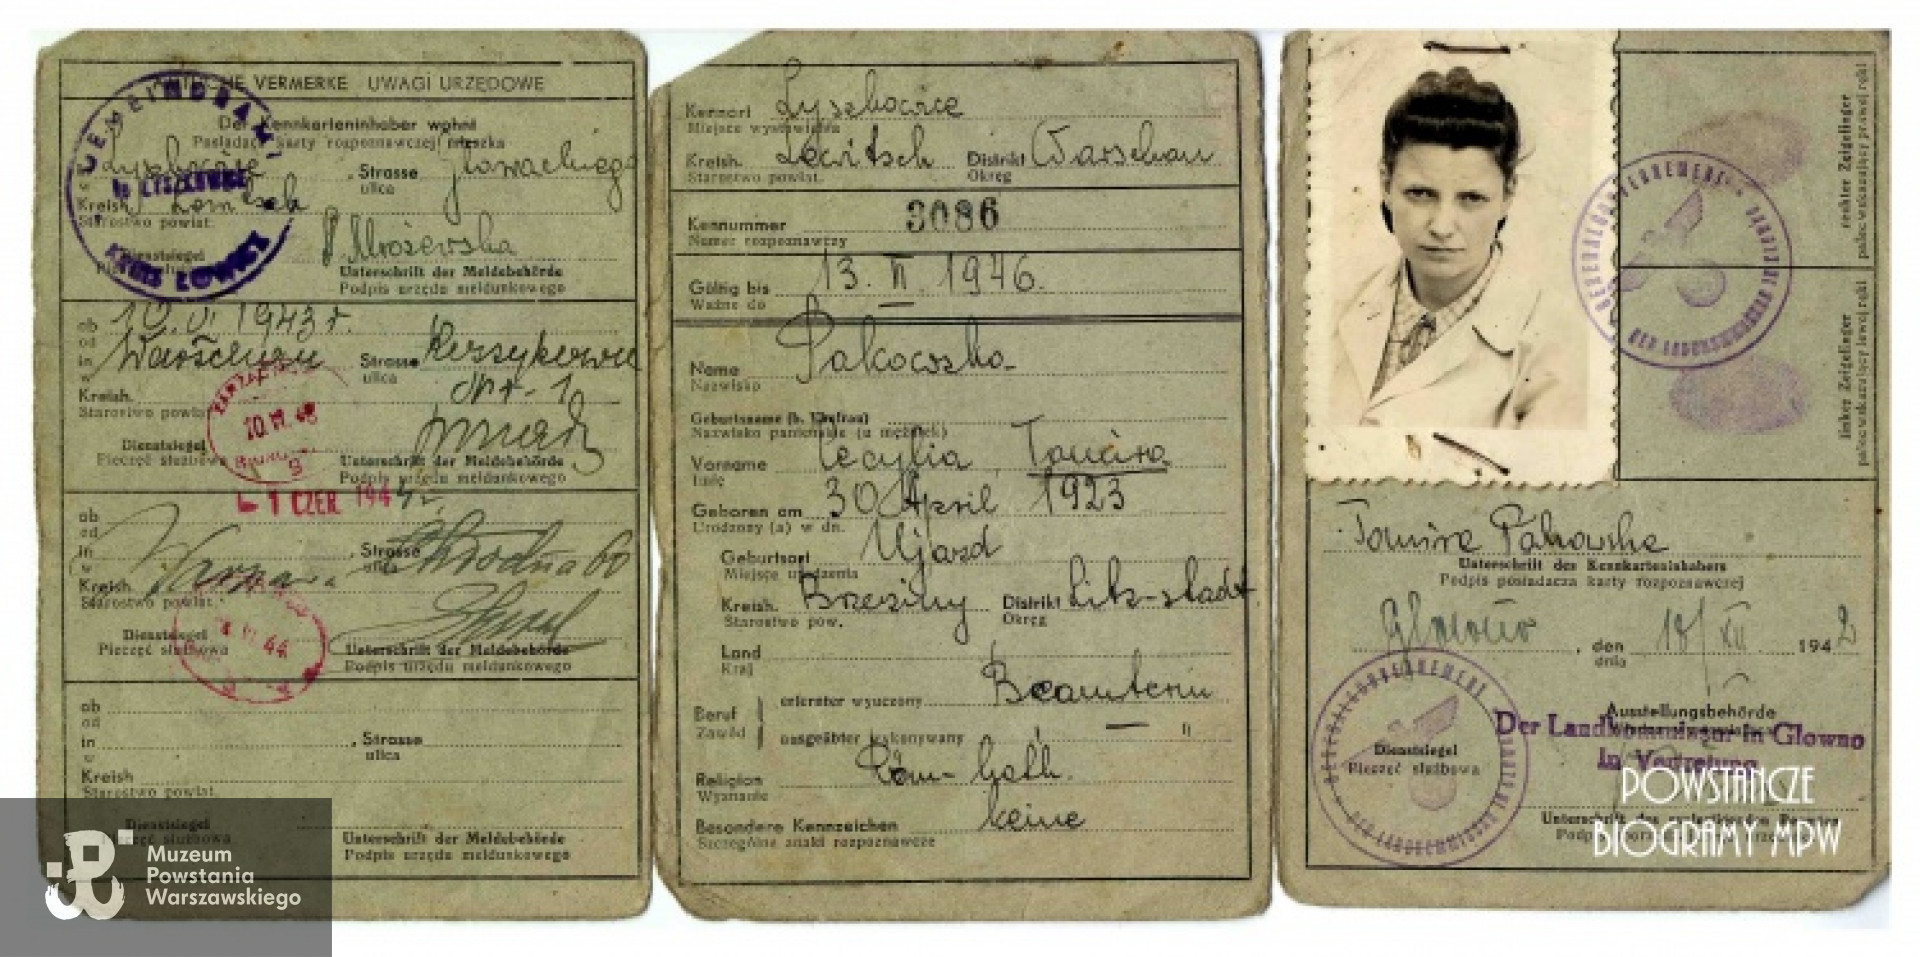 AMTLICHE VERMERKE UWAGI URZĘDOWE
Der Kennkarteninhaber wohnt
Posiadacz karty rozpoznawczej mieszka
Lyszkowice, Strasse Głowackiego
w ulica
Kreish. Lowitsch
Starostwo powiat.
Mrożewska
Dienstsiegel Unterschrift der Meldebehörde
Podpis urzędu meldunkowego
GEMEINDEAMT
in LYSZKOWICE
KREIS LOWICZ
ab 10.VI.1943 r.
od
in Warschau Strasse
w ulica
Kreish. Nr-1
Starostwo powiat.
Dienstsiegel Unterschrift der Meldebehörde
Pieczęć służbowa Podpis urzędu meldunkowego
1 CZER. 194
ab
od
in Warszawa, Strasse Chłodna 60
w ulica
Kreish.
Starostwo powiat.
Dienstsiegel Unterschrift der Meldebehörde
Pieczęć służbowa Podpis urzędu meldunkowego
44
ab
od
in , Strasse
w ulica
Kreish
Starostwo powiat.
Dienstsiegel Unterschrift der Meldebehörde
Pieczęć służbowa Podpis urzędu meldunkowego
Muzeum
Powstania
Warszawskiego
Kennort Lyszkowice
Miejsce wystawienia
Kreish. Lowitsch Distrikt Warschau
Starostwo powiat. Okręg
Kennummer 3086
Numer rozpoznawczy
Gültig bis 13. II. 1946.
Ważne do
Name Pakowska
Nazwisko
Geburtsname (b. Ehefrau)
Nazwisko panieńskie (u mężatek)
Vorname Cecylia, Tomira
Imię
Geboren am 30 April 1923
Urodzony (a) w dn.
Geburtsort Ujazd
Miejsce urodzenia
Kreish. Brzeziny Distrikt Litz-stadt
Starostwo pow. Okręg
Land
Kraj
Beruf erlernter wyuczony Beamterin
Zawód ausgeübter wykonywany
Religion Röm-kath.
Wyznanie
Besondere Kennzeichen keine
Szczególne znaki rozpoznawcze
rechter Zeigefinger
palec wskazujący prawej ręki
linker Zeigefinger
palec wskazujący lewej ręki
Tomira Pakowska
Unterschrift des Kennkarteninhabers
Podpis posiadacza karty rozpoznawczej
Glowno, den 18/XII. 1942
dnia
GENERALGOUVERNEMENT
Dienstsiegel
Pieczęć służbowa
Ausstellungsbehörde
Der Landkommissar in Glowno
In Vertretung
POWSTAŃCZE
BIOGRAMY MPW